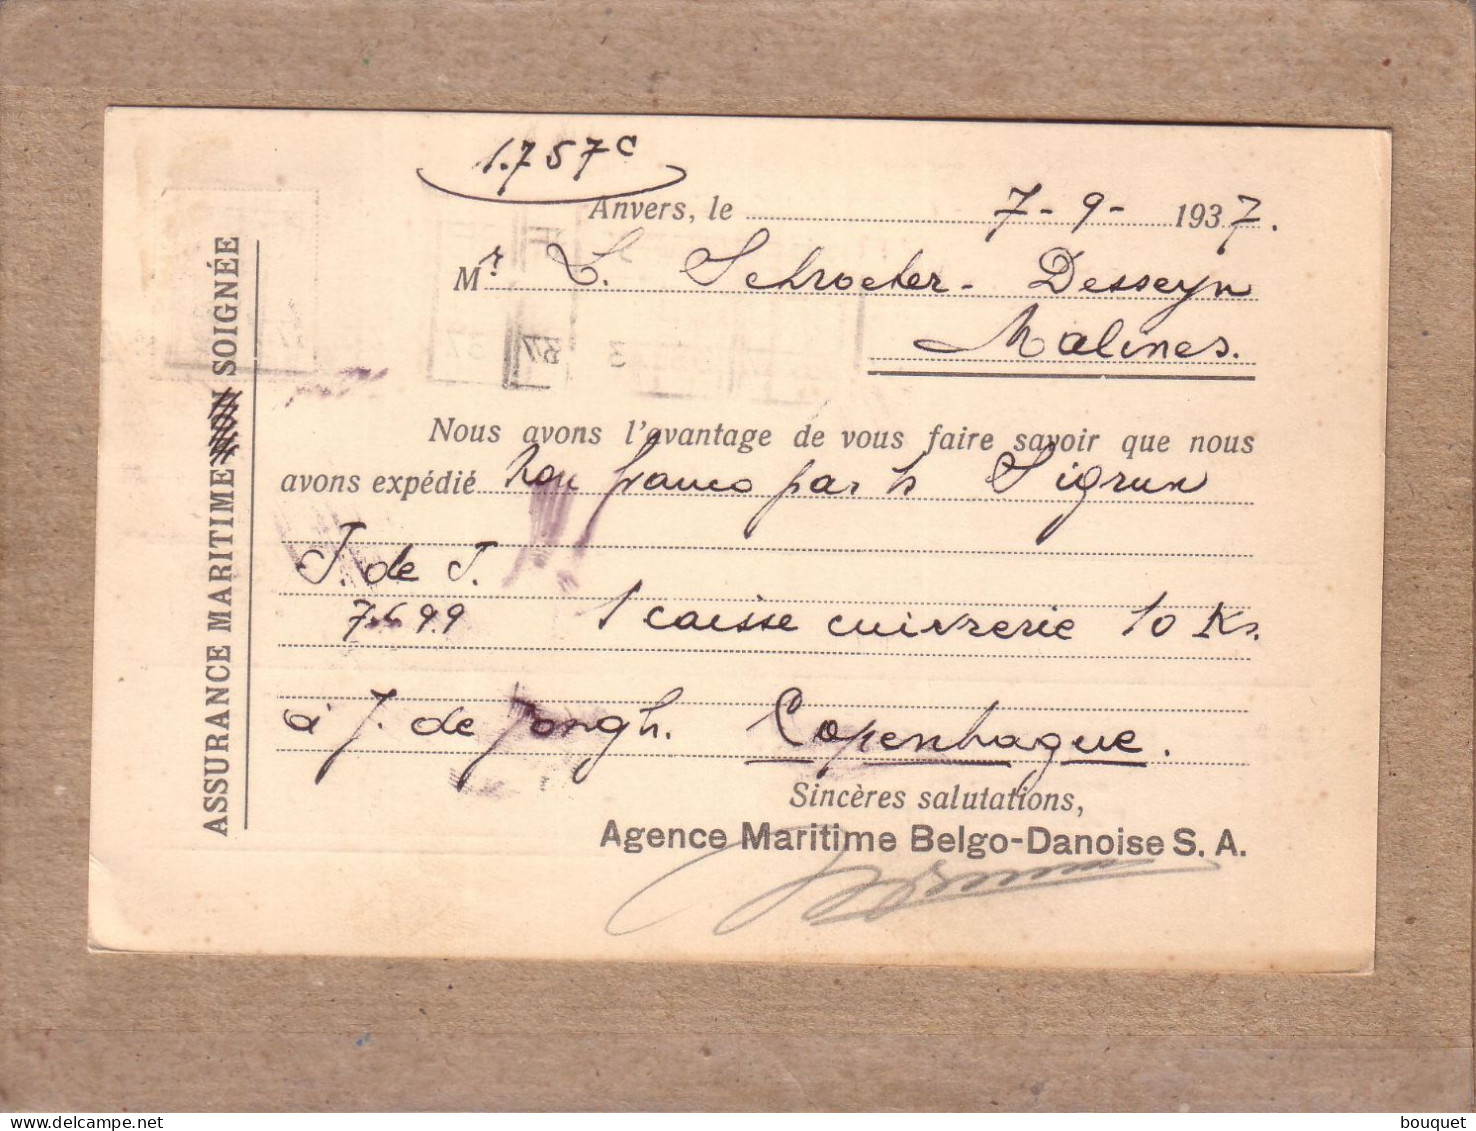 1.757c
Anvers, le 7-9- 1937.
Mr. L. Schroeter-Desseyn
Malines.
Nous avons l'avantage de vous faire savoir que nous
avons expédié non franco par Sigrun
J. de J.
7499 1 caisse cuivrerie 10 Ks.
à J. de Jongh. Copenhague.
Sincères salutations,
Agence Maritime Belgo-Danoise S. A.
ASSURANCE MARITIME SOIGNÉE
37 37 3
bouquet